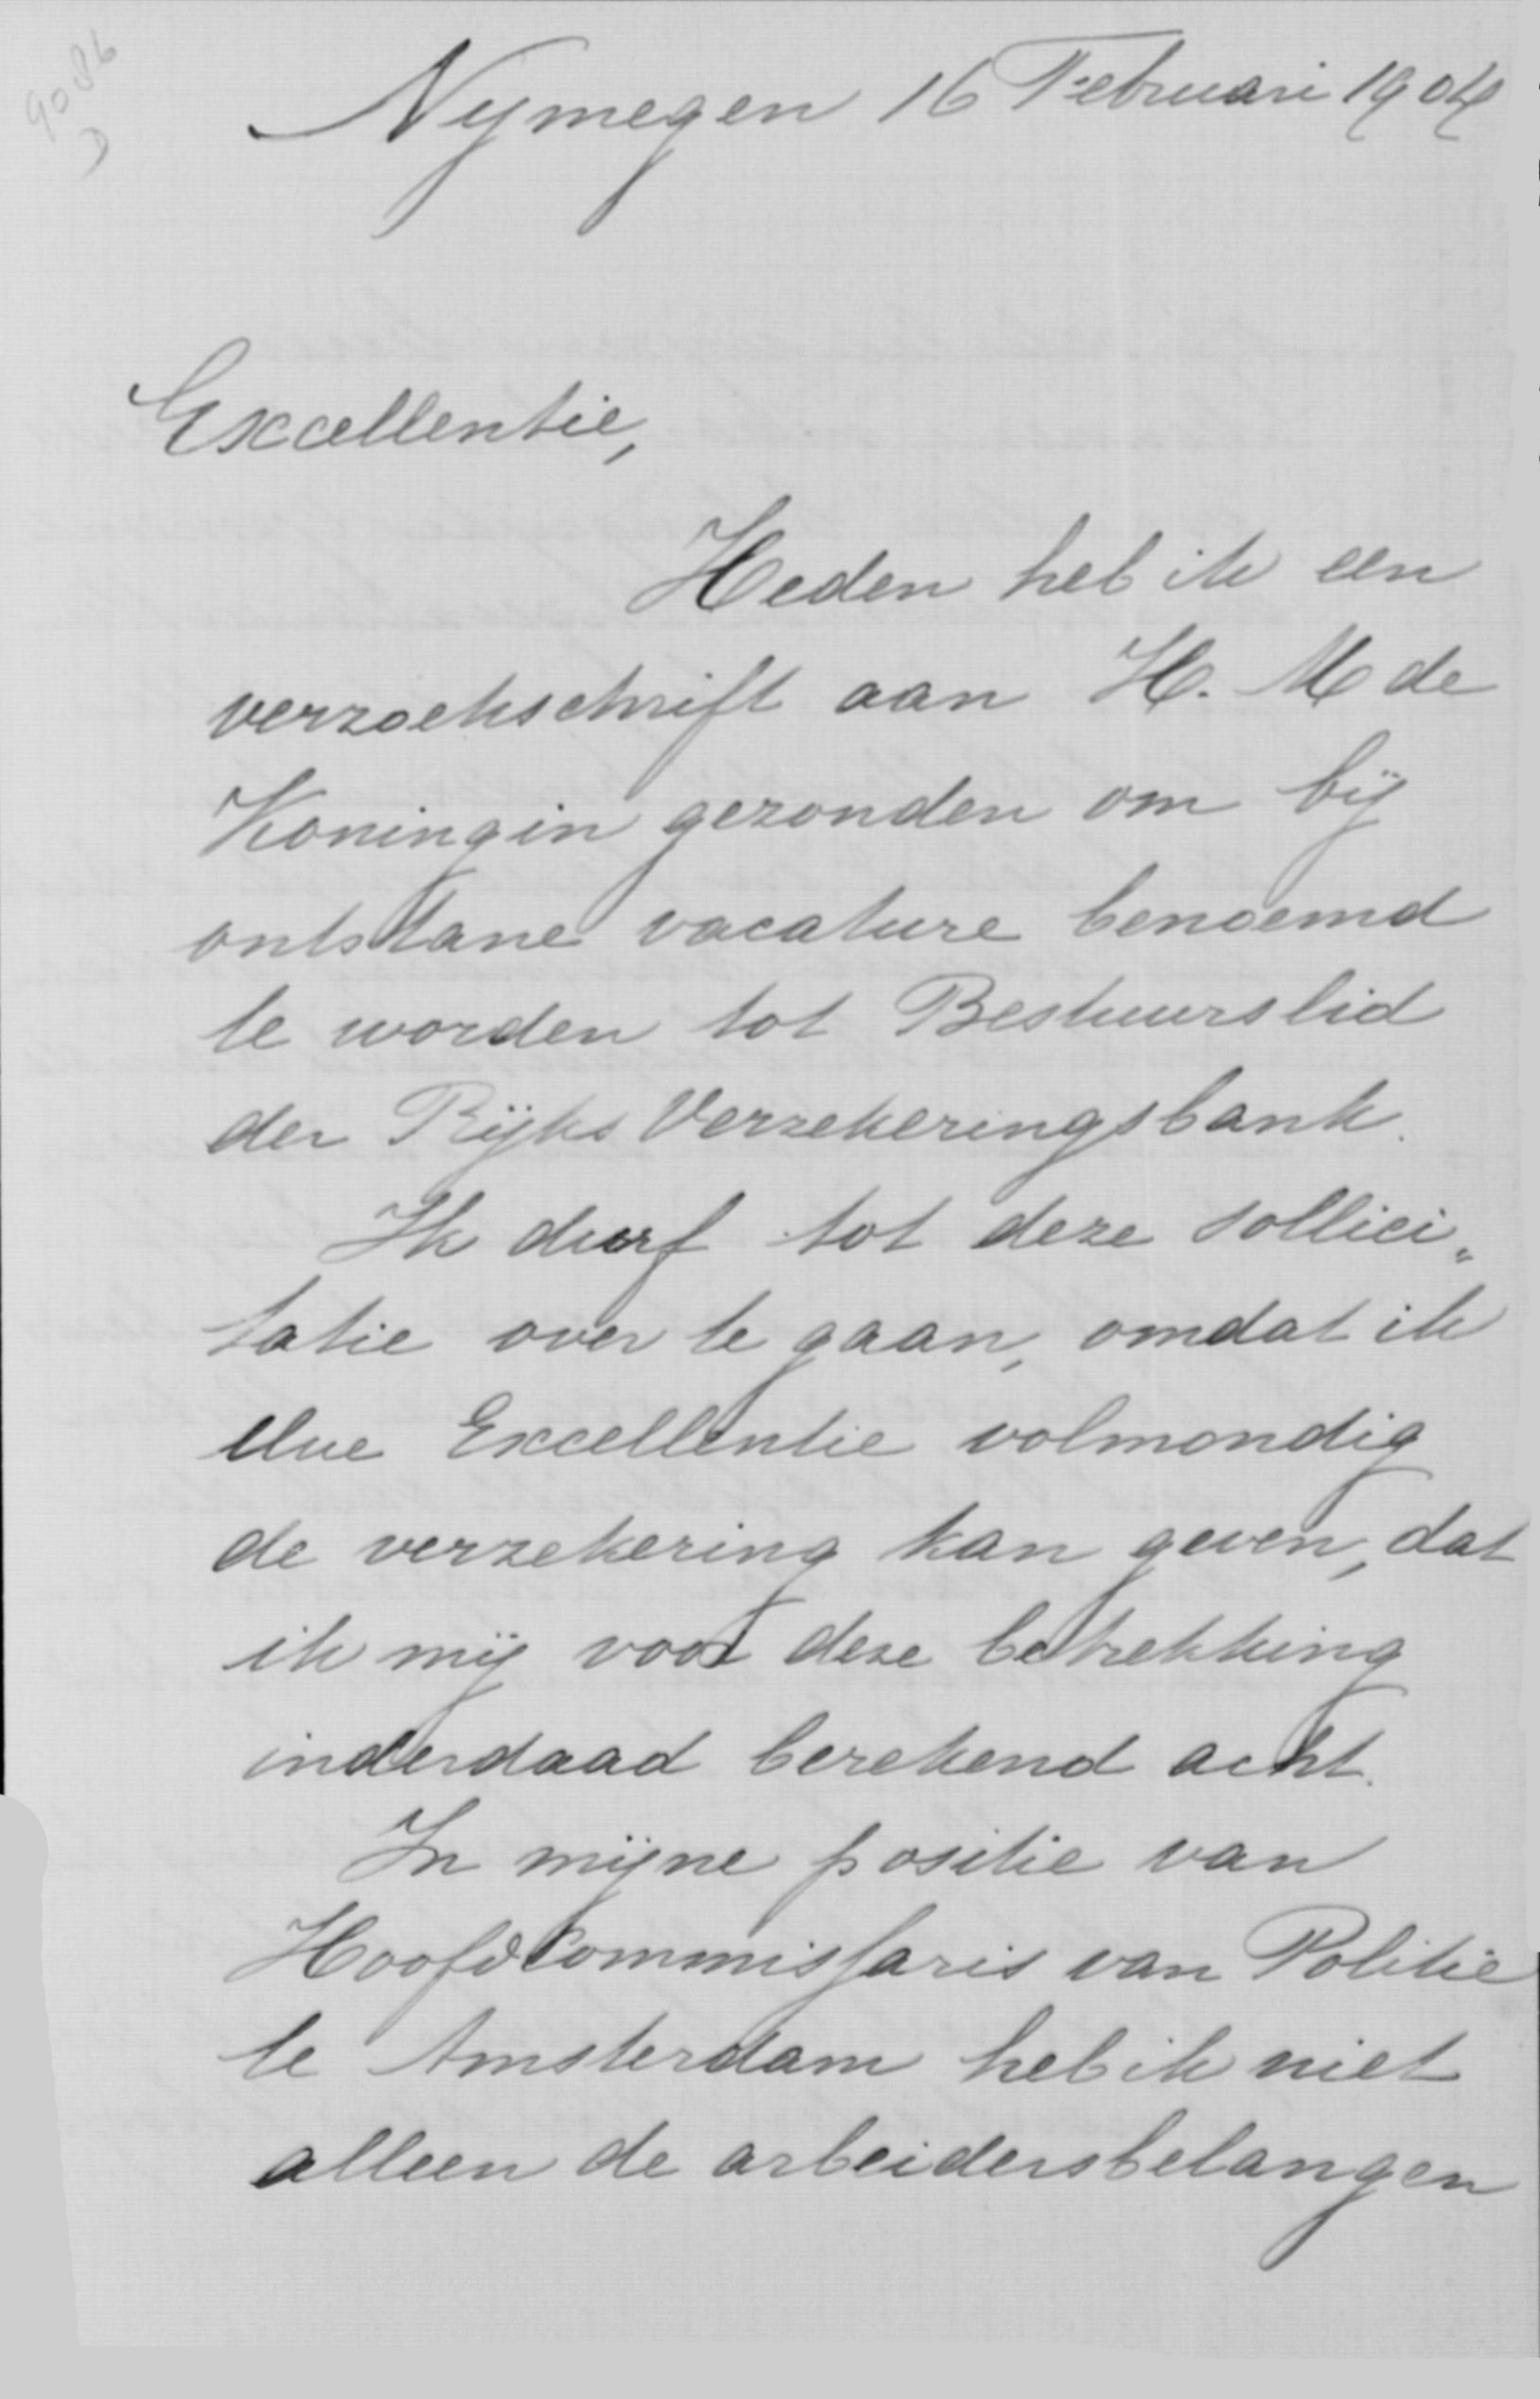 9086
Nijmegen 16 Februari 1904
Excellentie,
Heden heb ik een
verzoekschrift aan H. M de
Koningin gezonden om bij
ontstane vacature benoemd
te worden tot Bestuurslid
der Rijks Verzekeringsbank.
Ik durf tot deze sollici„
tatie over te gaan, omdat ik
Uwe Excellentie volmondig
de verzekering kan geven, dat
ik mij voor deze betrekking
inderdaad berekend acht.
In mijne positie van
Hoofdcommissaris van Politie
te Amsterdam heb ik niet
alleen de arbeidersbelangen